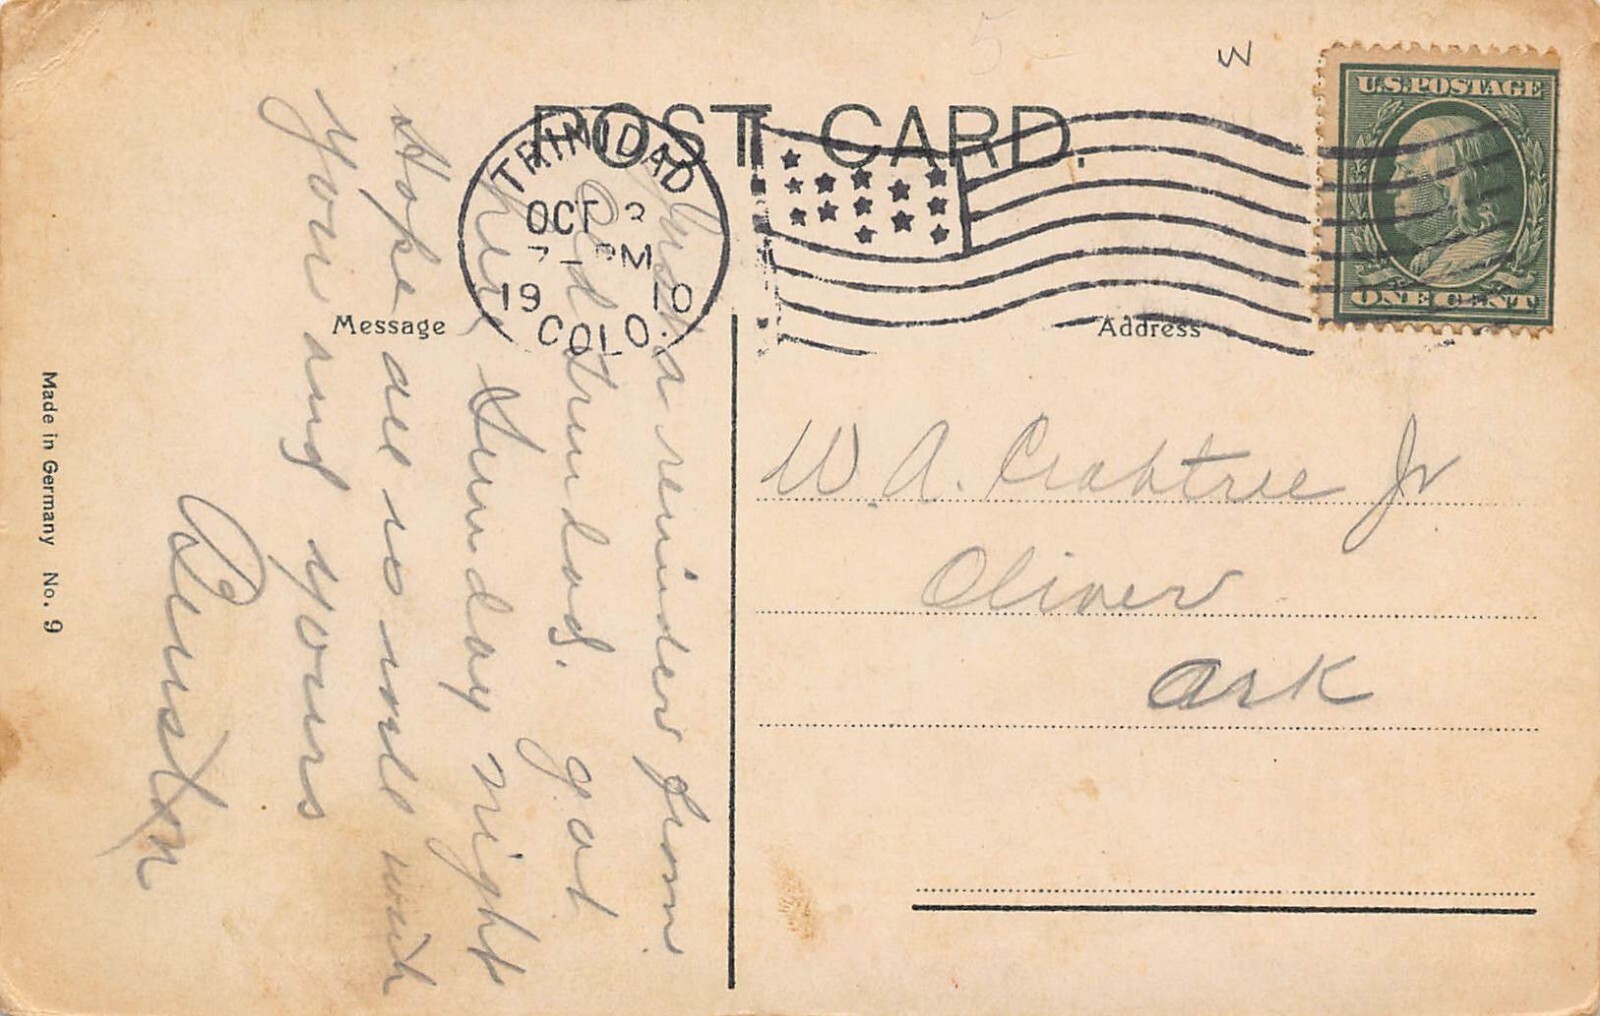 5
W
U.S.POSTAGE
ONE CENT
POST CARD.
TRINIDAD
OCT
7- PM
19 10
COLO.
Message
Address
Just a reminder from
Old Trinidad. got
here Sunday night
Hope all is well with
you and yours
W. A. Crabtree Jr
Oliver
Ark
Made in Germany No. 9